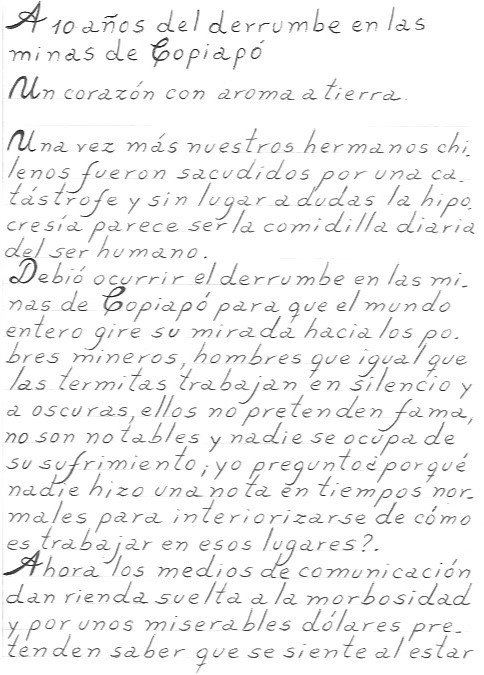 A 10 años del derrumbe en las
minas de Copiapó
Un corazón con aroma a tierra.
Una vez más nuestros hermanos chi-
lenos fueron sacudidos por una ca-
tástrofe y sin lugar a dudas la hipo-
cresía parece ser la comidilla diaria
del ser humano.
Debió ocurrir el derrumbe en las mi-
nas de Copiapó para que el mundo
entero gire su mirada hacia los po-
bres mineros, hombres que igual que
las termitas trabajan en silencio y
a oscuras, ellos no pretenden fama,
no son notables y nadie se ocupa de
su sufrimiento; yo pregunto ¿porqué
nadie hizo una nota en tiempos nor-
males para interiorizarse de cómo
es trabajar en esos lugares?.
Ahora los medios de comunicación
dan rienda suelta a la morbosidad
y por unos miserables dólares pre-
tenden saber que se siente al estar